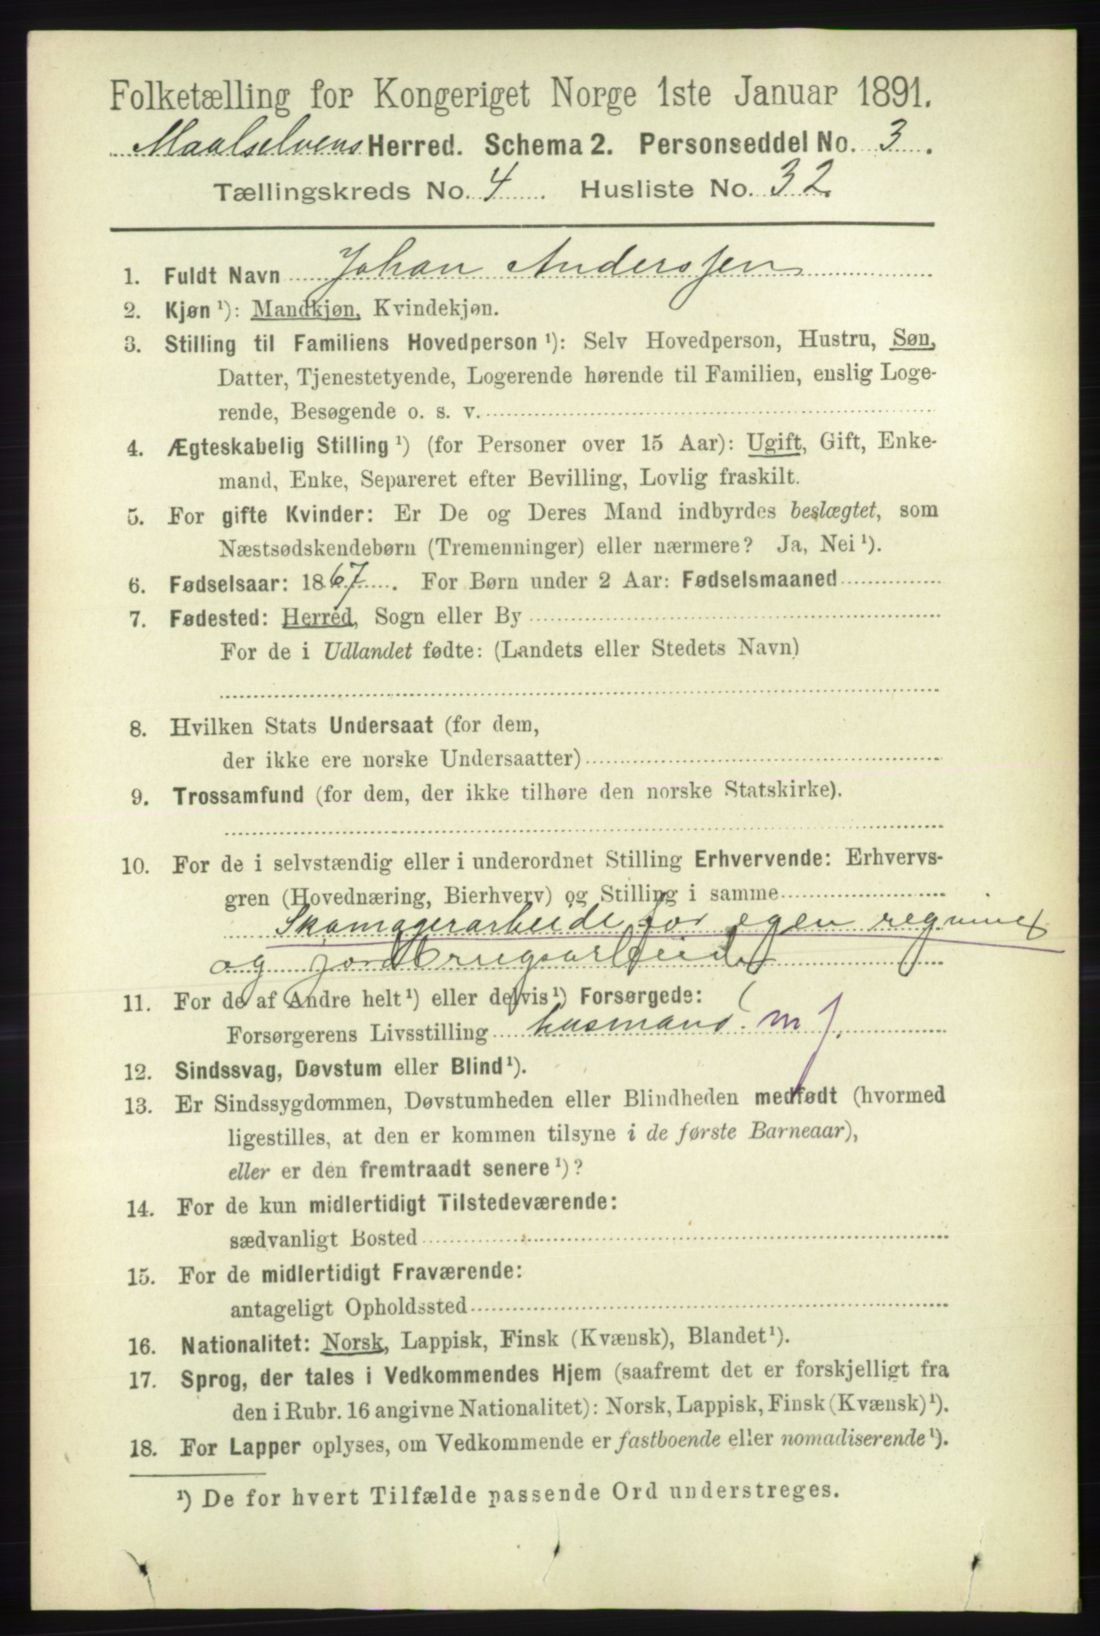 Folketælling for Kongeriget Norge 1ste Januar 1891.
Maalselvens Herred. Schema 2. Personseddel No. 3.
Tællingskreds No. 4. Husliste No. 32.
1. Fuldt Navn Johan Anderssen
2. Kjøn ¹): Mandkjøn, Kvindekjøn.
3. Stilling til Familiens Hovedperson ¹): Selv Hovedperson, Hustru, Søn,
Datter, Tjenestetyende, Logerende hørende til Familien, enslig Loge-
rende, Besøgende o. s. v.
4. Ægteskabelig Stilling ¹) (for Personer over 15 Aar): Ugift, Gift, Enke-
mand, Enke, Separeret efter Bevilling, Lovlig fraskilt.
5. For gifte Kvinder: Er De og Deres Mand indbyrdes beslægtet, som
Næstsødskendebørn (Tremenninger) eller nærmere? Ja, Nei ¹).
6. Fødselsaar: 1867. For Børn under 2 Aar: Fødselsmaaned
7. Fødested: Herred, Sogn eller By
For de i Udlandet fødte: (Landets eller Stedets Navn)
8. Hvilken Stats Undersaat (for dem,
der ikke ere norske Undersaatter)
9. Trossamfund (for dem, der ikke tilhøre den norske Statskirke).
10. For de i selvstændig eller i underordnet Stilling Erhvervende: Erhvervs-
gren (Hovednæring, Bierhverv) og Stilling i samme
Skomagerarbeide for egen regning
og jordbrugsarbeide
11. For de af Andre helt ¹) eller delvis ¹) Forsørgede:
Forsørgerens Livsstilling husmand. m J.
12. Sindssvag, Døvstum eller Blind ¹).
13. Er Sindssygdommen, Døvstumheden eller Blindheden medfødt (hvormed
ligestilles, at den er kommen tilsyne i de første Barneaar),
eller er den fremtraadt senere ¹)?
14. For de kun midlertidigt Tilstedeværende:
sædvanligt Bosted
15. For de midlertidigt Fraværende:
antageligt Opholdssted
16. Nationalitet: Norsk, Lappisk, Finsk (Kvænsk), Blandet ¹).
17. Sprog, der tales i Vedkommendes Hjem (saafremt det er forskjelligt fra
den i Rubr. 16 angivne Nationalitet): Norsk, Lappisk, Finsk (Kvænsk) ¹).
18. For Lapper oplyses, om Vedkommende er fastboende eller nomadiserende ¹).
¹) De for hvert Tilfælde passende Ord understreges.